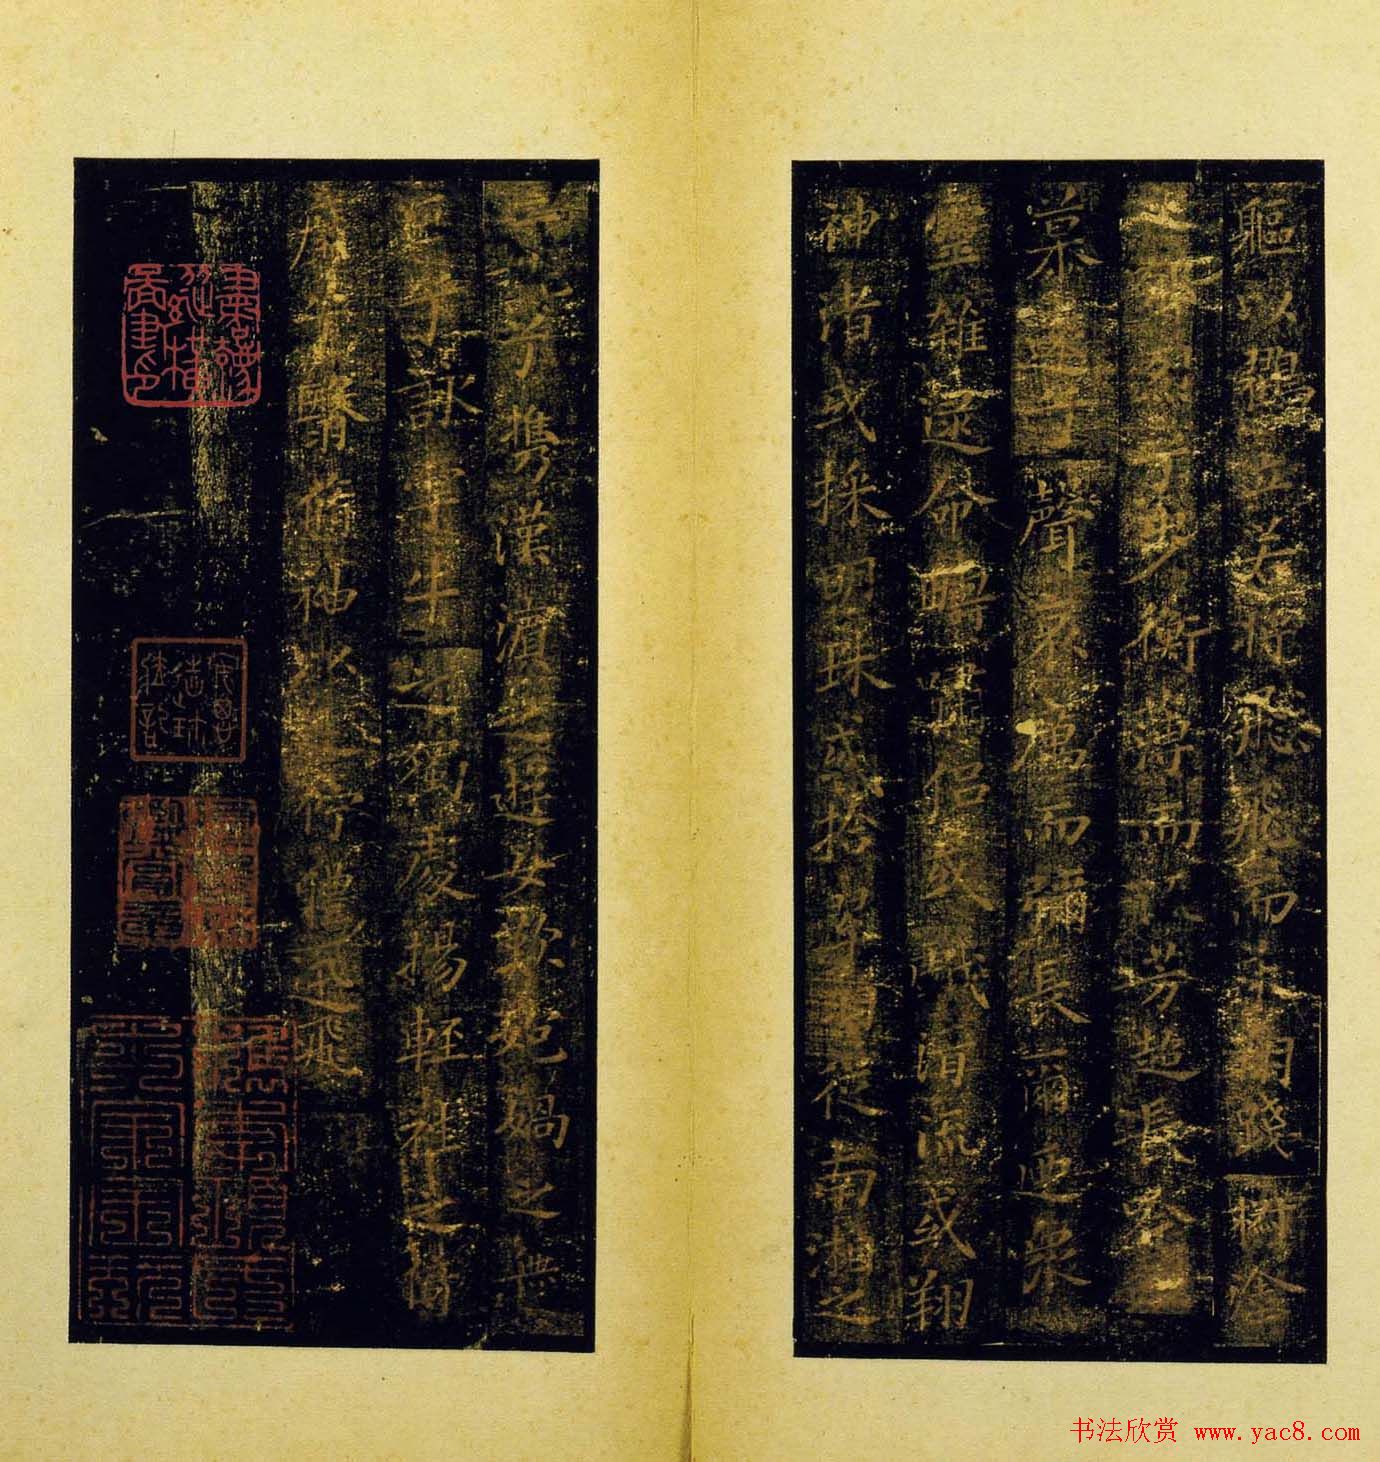 軀以鶴立若將飛飛而未翔踐椒塗
之郁烈兮步衡薄而流芳超長吟以
慕遠兮聲哀厲而彌長爾迺衆
靈雜遝命疇嘯侶或戲清流或翔
神渚或採明珠或拾翠羽從南湘之
二妃兮攜漢濱之遊女歎匏媧之無
匹兮詠牽牛之獨處揚輕袿之猗
靡兮翳脩袖以延佇體迅飛
书法欣赏 www.yac8.com